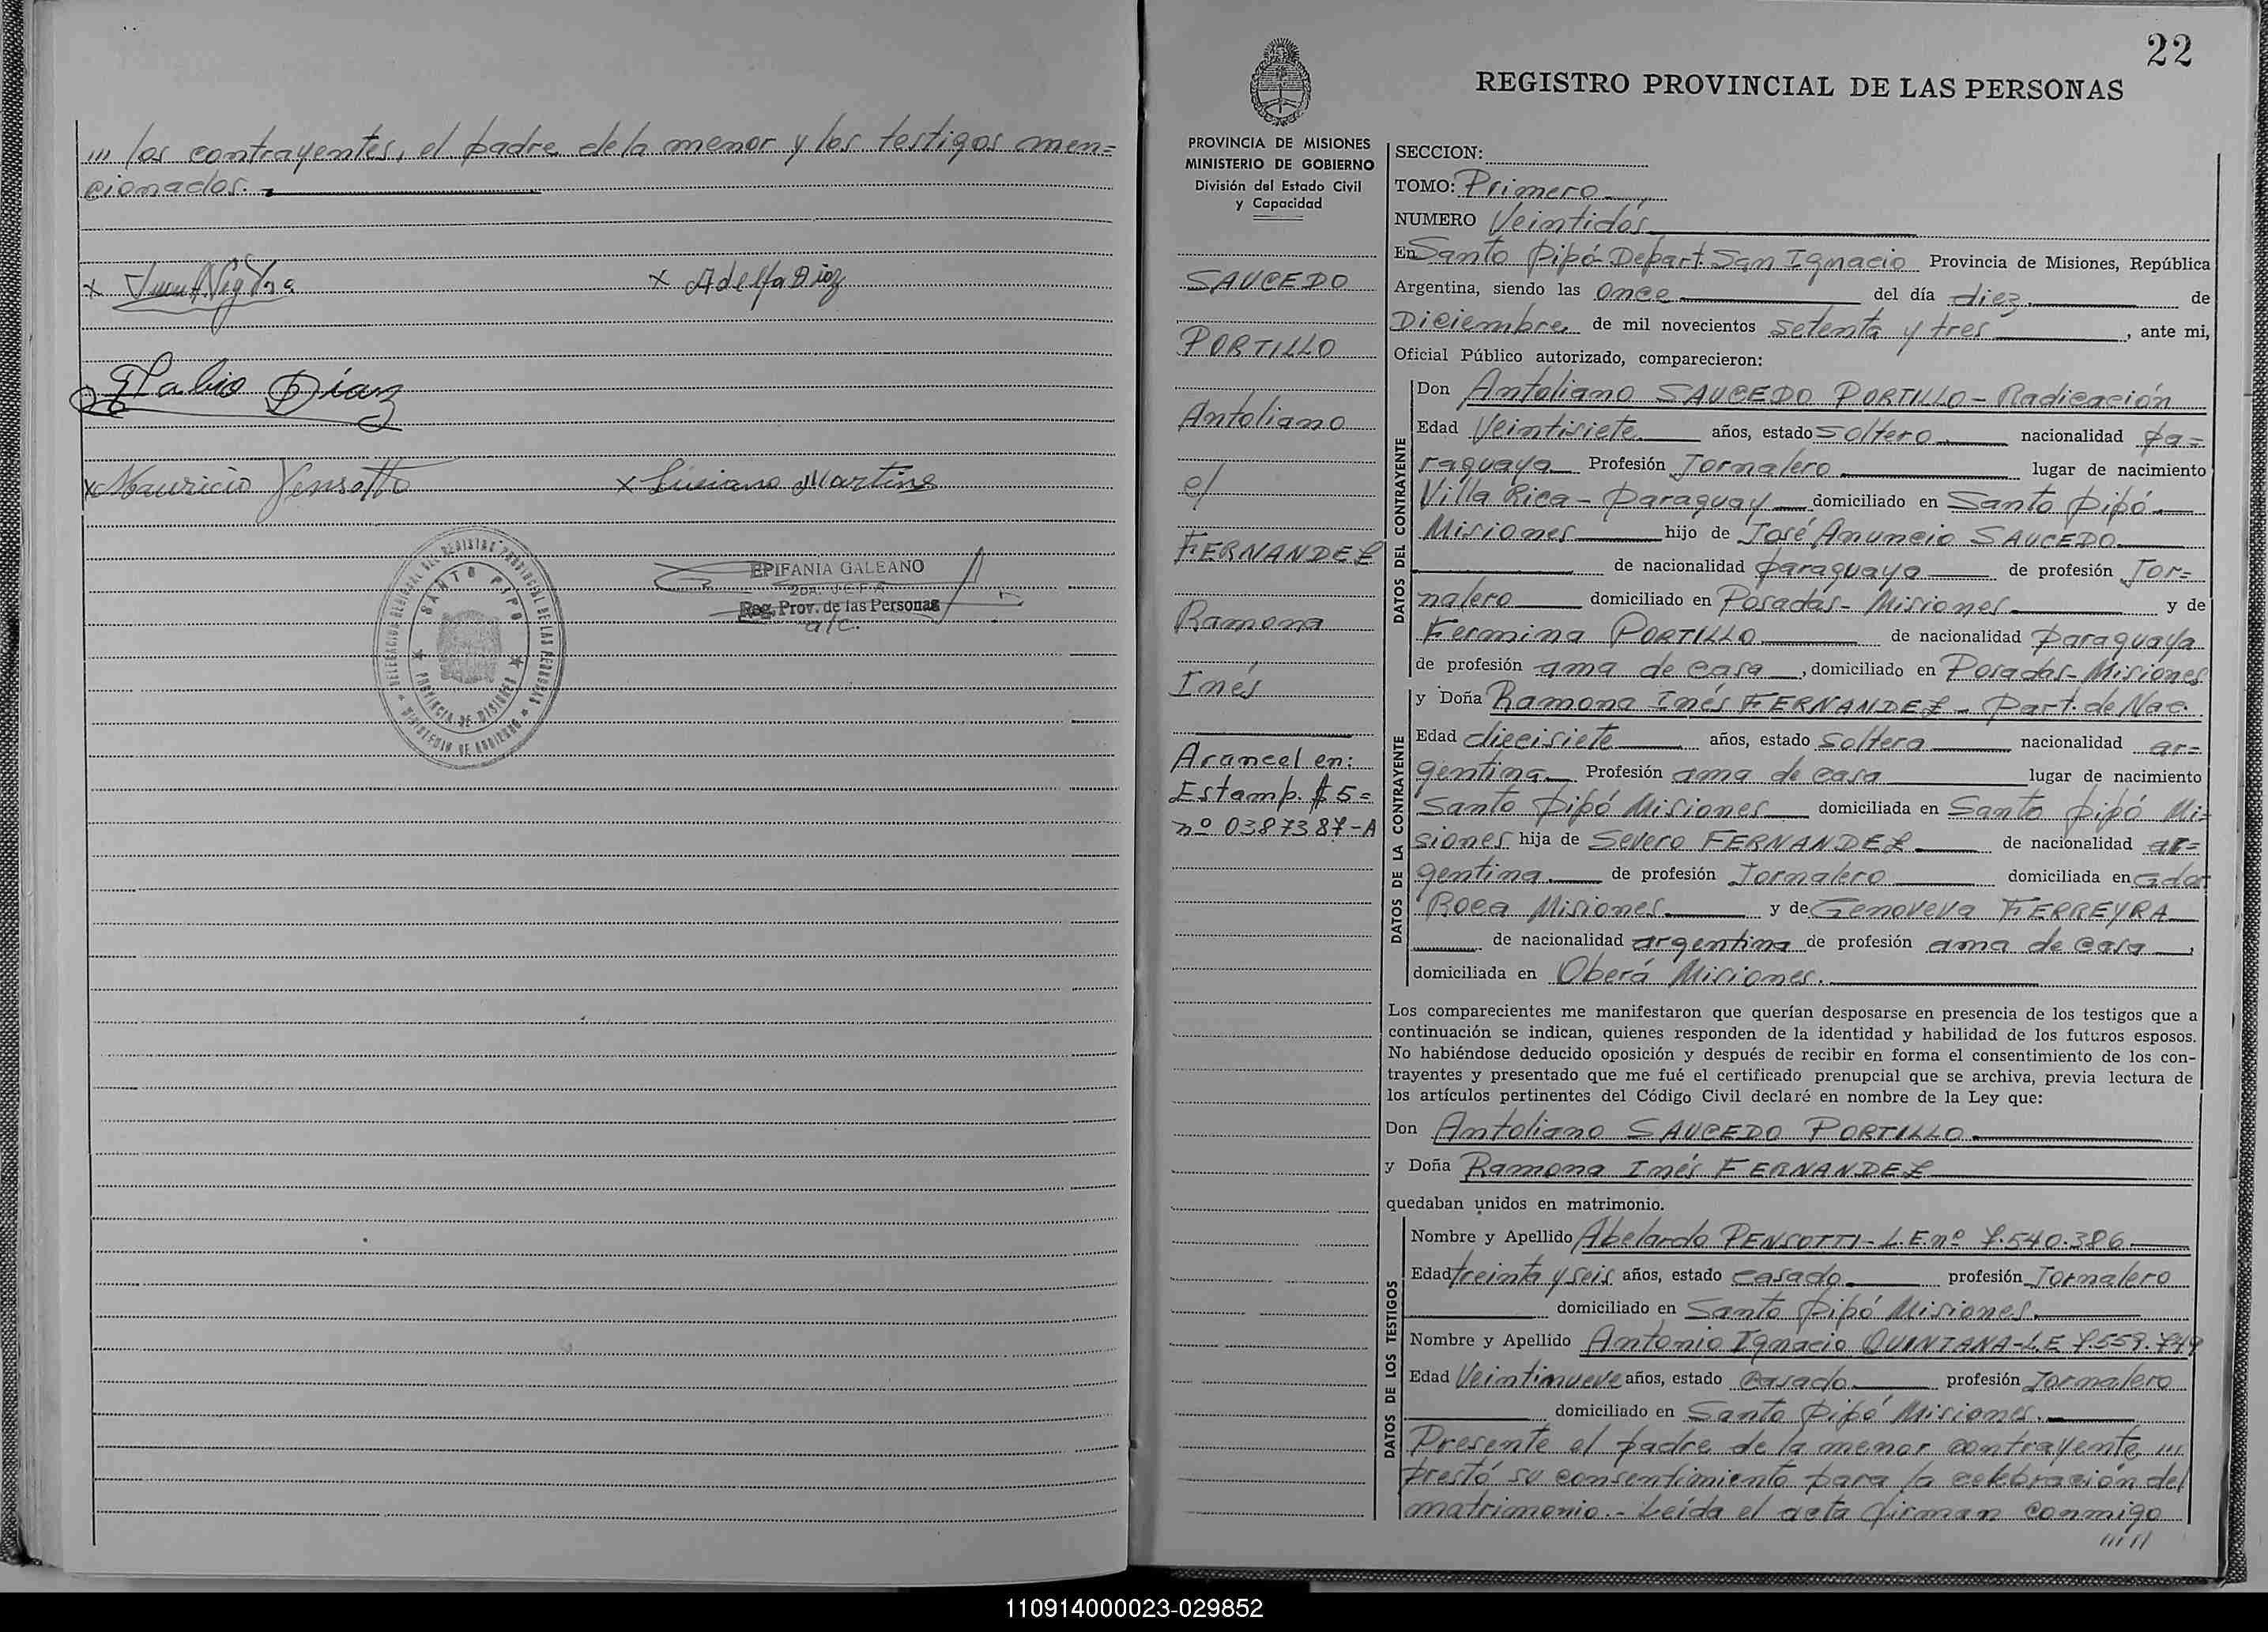 /// los contrayentes, el padre de la menor y los testigos men=
cionados.-
x
x Adelfa Diaz
Fabio Díaz
x Mauricio Pensotti
x Luciano Martins
DELEGACION GENERAL DEL REGISTRO PROVINCIAL DE LAS PERSONAS
SANTO PIPO
PROVINCIA DE MISIONES
MINISTERIO DE GOBIERNO
EPIFANIA GALEANO
2DA. J.E.F.A
Reg. Prov. de las Personas
a/c.
22
REGISTRO PROVINCIAL DE LAS PERSONAS
PROVINCIA DE MISIONES
MINISTERIO DE GOBIERNO
División del Estado Civil
y Capacidad
SAUCEDO
PORTILLO
Antoliano
c/
FERNANDEZ
Ramona
Inés
Arancel en:
Estamp. $ 5=
nº 0387387-A
SECCION:
TOMO: Primero
NUMERO Veintidós
En Santo Pipó-Depart. San Ignacio Provincia de Misiones, República
Argentina, siendo las Once del día diez de
Diciembre de mil novecientos setenta y tres, ante mi,
Oficial Público autorizado, comparecieron:
DATOS DEL CONTRAYENTE
Don Antoliano SAUCEDO PORTILLO - Radicación
Edad Veintisiete años, estado Soltero nacionalidad pa=
raguaya Profesión Jornalero lugar de nacimiento
Villa Rica - Paraguay domiciliado en Santo Pipó
Misiones hijo de José Anuncio SAUCEDO
de nacionalidad paraguaya de profesión Jor=
nalero domiciliado en Posadas - Misiones y de
Fermina PORTILLO de nacionalidad paraguaya
de profesión ama de casa, domiciliado en Posadas-Misiones
DATOS DE LA CONTRAYENTE
y Doña Ramona Inés FERNANDEZ - Part. de Nac.
Edad diecisiete años, estado soltera nacionalidad ar=
gentina Profesión ama de casa lugar de nacimiento
Santo Pipó Misiones domiciliada en Santo Pipó Mi=
siones hija de Severo FERNANDEZ de nacionalidad ar=
gentina de profesión Jornalero domiciliada en Gdor
Roca Misiones y de Genoveva FERREYRA
de nacionalidad argentina de profesión ama de casa,
domiciliada en Oberá Misiones.
Los comparecientes me manifestaron que querían desposarse en presencia de los testigos que a
continuación se indican, quienes responden de la identidad y habilidad de los futuros esposos.
No habiéndose deducido oposición y después de recibir en forma el consentimiento de los con-
trayentes y presentado que me fué el certificado prenupcial que se archiva, previa lectura de
los artículos pertinentes del Código Civil declaré en nombre de la Ley que:
Don Antoliano SAUCEDO PORTILLO
y Doña Ramona Inés FERNANDEZ
quedaban unidos en matrimonio.
DATOS DE LOS TESTIGOS
Nombre y Apellido Abelardo PENSOTTI - L.E. nº 7.540.386
Edad treinta y seis años, estado casado profesión Jornalero
domiciliado en Santo Pipó Misiones.
Nombre y Apellido Antonio Ignacio QUINTANA-L.E 7.559.749
Edad Veintinueve años, estado Casado profesión Jornalero
domiciliado en Santo Pipó Misiones.
Presente el padre de la menor contrayente ///
prestó su consentimiento para la celebración del
matrimonio.- Leída el acta firman conmigo
/////
110914000023-029852